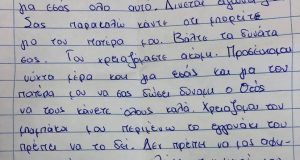 για εσάς όλο αυτό. Δίνεται αγώνα
Σας παρακαλώ κάντε ότι μπορείτε
για τον πατέρα μου. Βάλτε τα δυνατά
σας. Τον χρειαζόμαστε ακόμη. Προσεύχομαι
νύχτα μέρα και για εσάς και για τον
πατέρα μου να σας δώσει δύναμη ο Θεός
να τους κάνετε όλους καλά. Χρειάζομαι τον
μπαμπά μου περιμένω το εγγονάκι του
πρέπει να το δει. Δεν πρέπει να μας αφή-